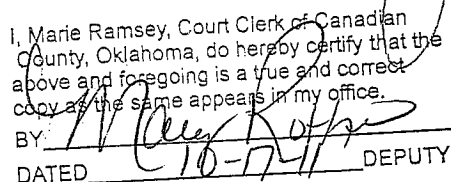 I, Marie Ramsey, Court Clerk of Canadian
County, Oklahoma, do hereby certify that the
above and foregoing is a true and correct
copy as the same appears in my office.
BY
DATED 10-17-11 DEPUTY